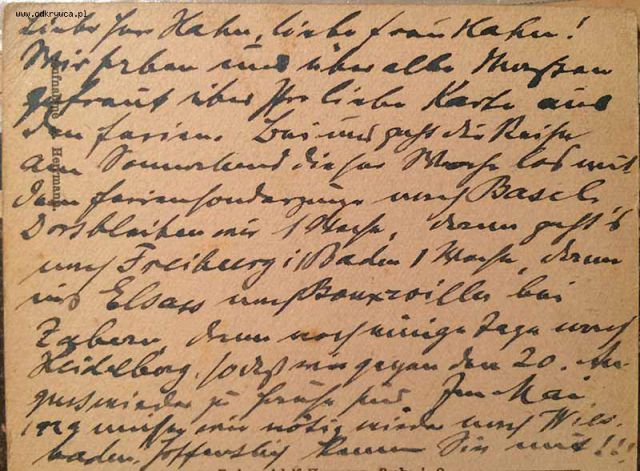 www.odkrywca.pl
Liebe Herr Hahn, liebe Frau Hahn!
Wir haben uns über alle Maßen
gefreut über Ihre liebe Karte aus
den Ferien. Bei uns geht die Reise
am Sonnabend dieser Woche los mit
dem Feriensonderzuge nach Basel.
Dort bleiben wir 1 Woche, dann geht's
nach Freiburg i/Baden 1 Woche, dann
ins Elsass nach Bouxwiller bei
Zabern, dann noch einige Tage nach
Heidelberg, sodaß wir gegen den 20. Au-
gust wieder zu Hause sind. Im Mai
müssen wir nötig wieder nach Wies-
baden. Hoffentlich kommen Sie mit!!!
Aufnahme Hermann